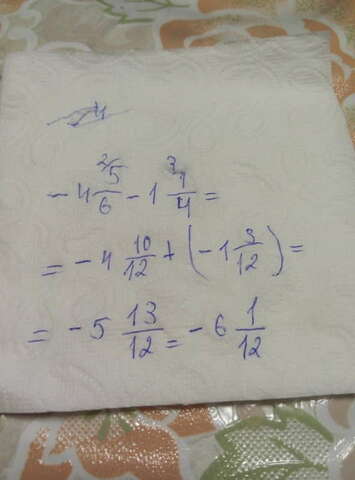 - 4 2/5/6 - 1 3/1/4 =
= - 4 10/12 + (- 1 3/12) =
= - 5 13/12 = - 6 1/12